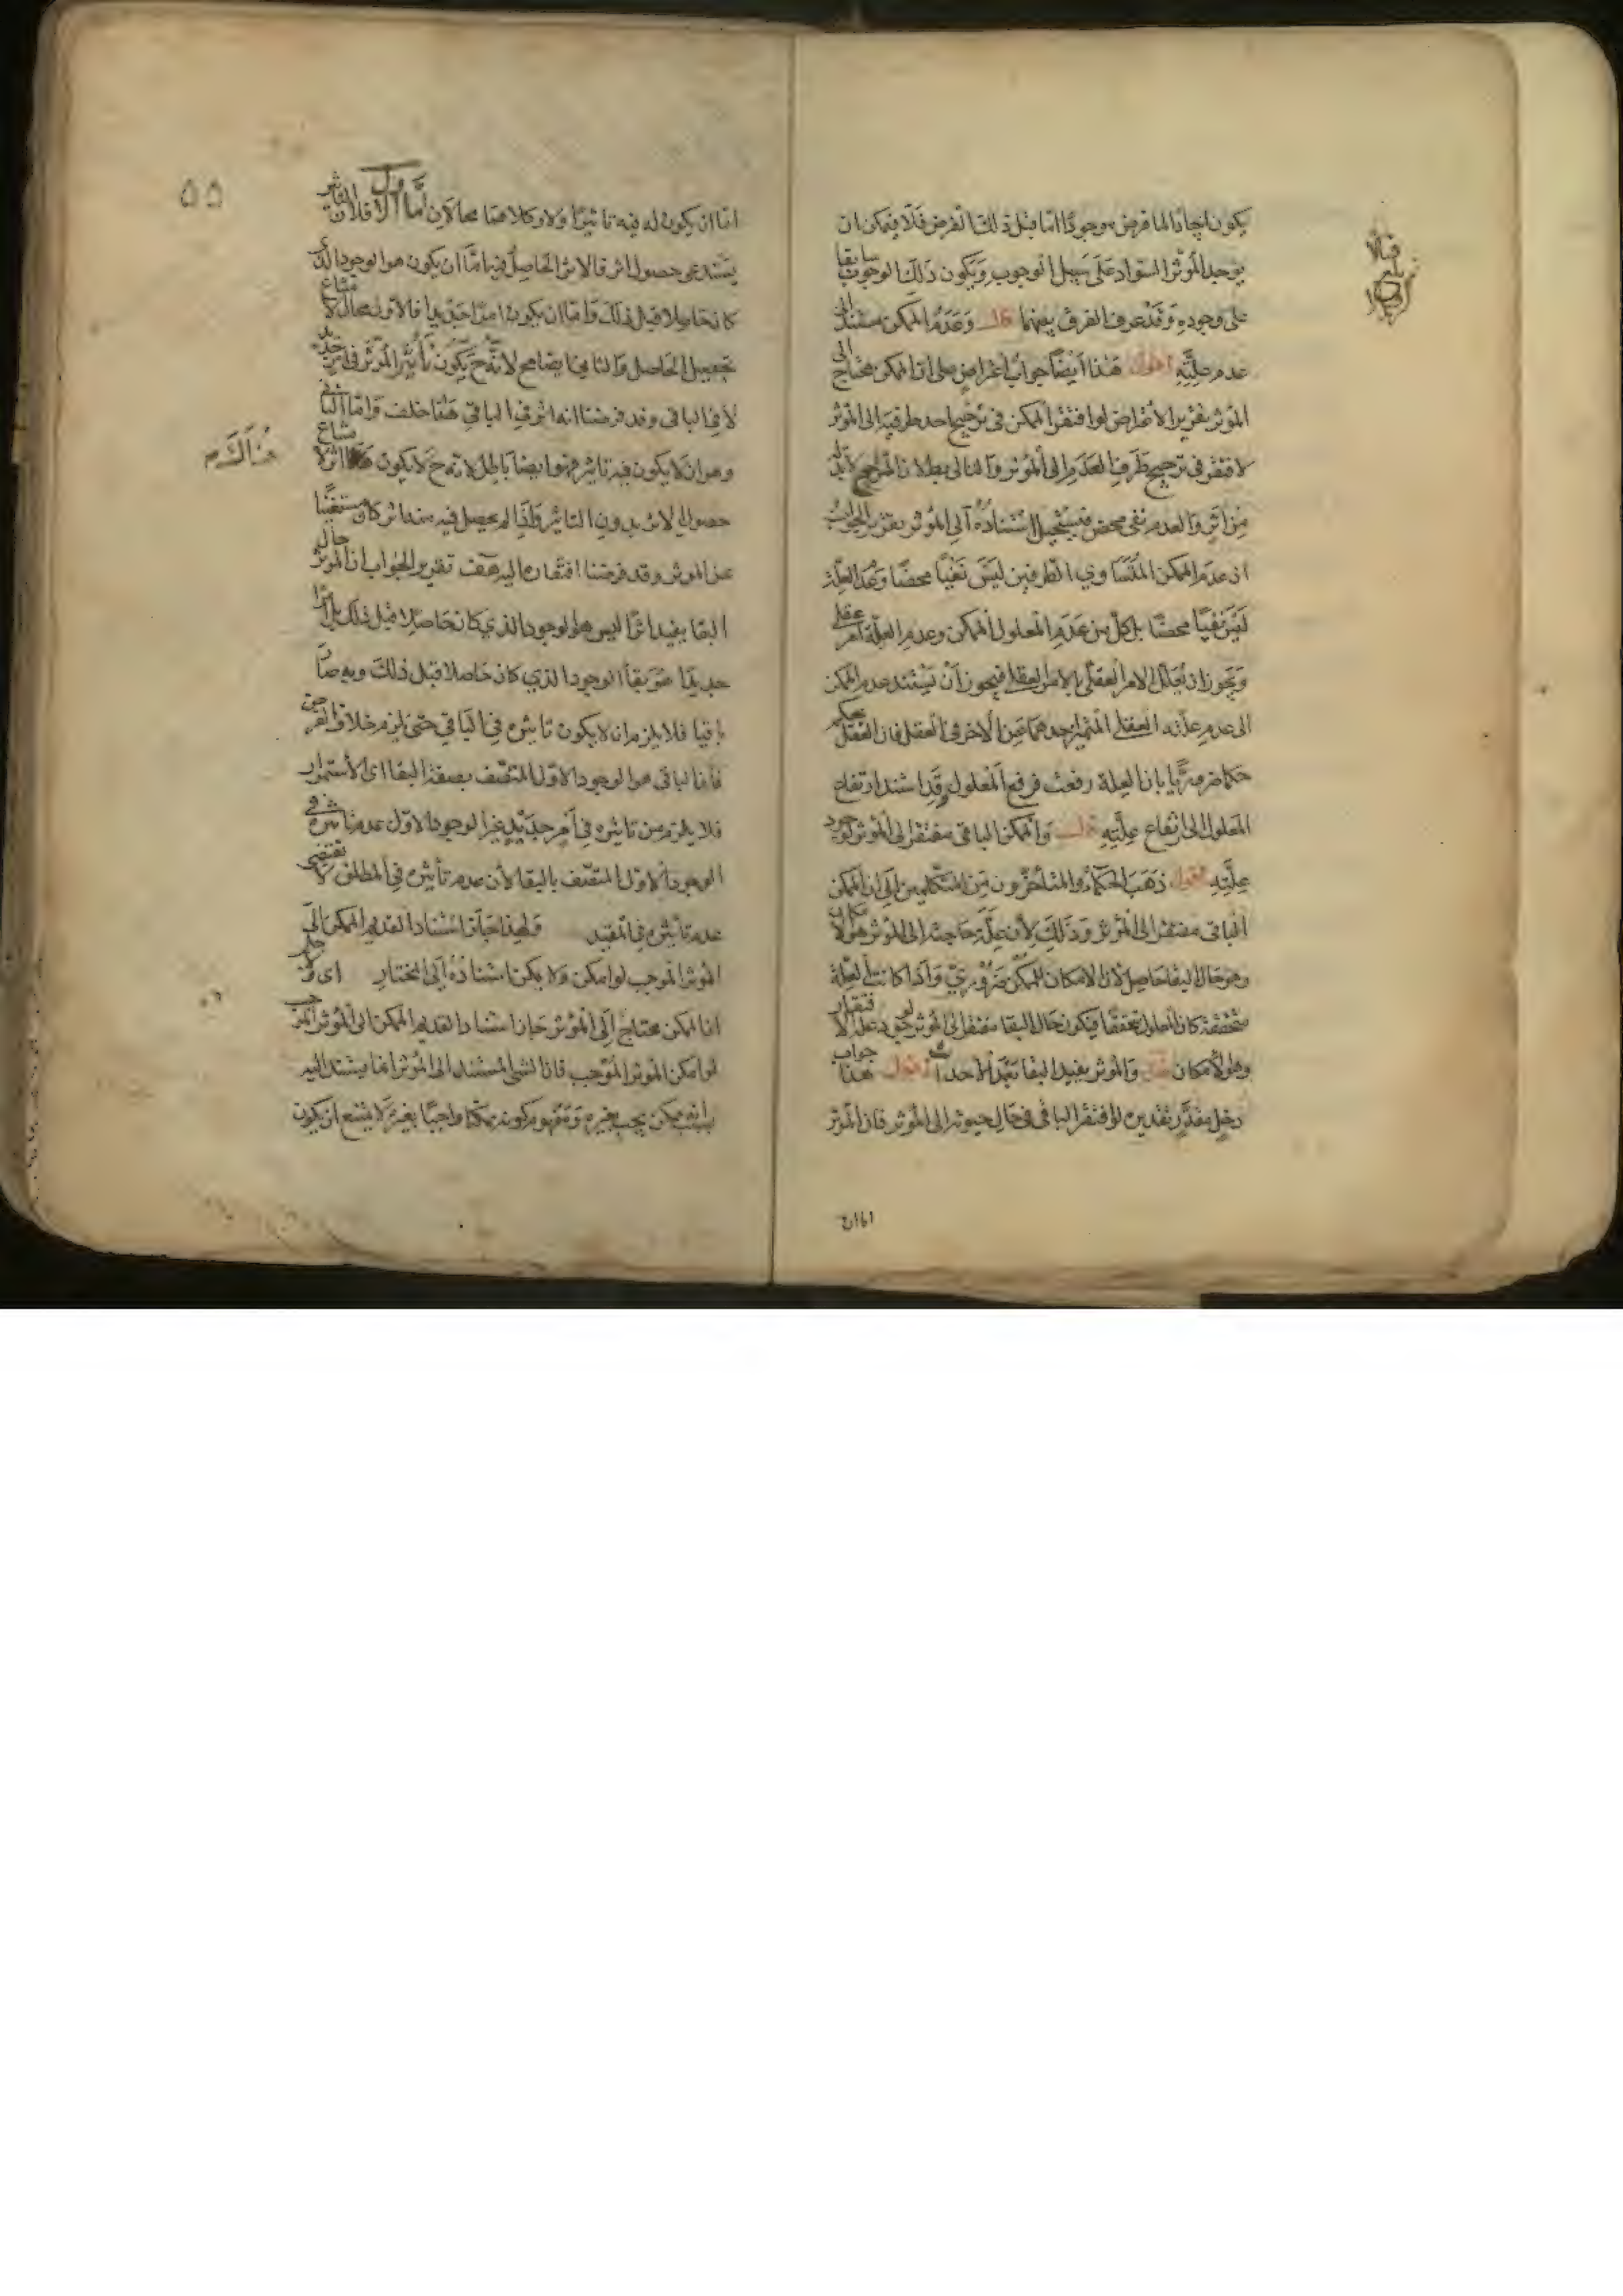 يكون ايجادا لما فرض موجودا اما قبل ذلك الفرض فلا فيمكن ان
يوجد المؤثر السواد على سبيل الوجوب ويكون ذلك الوجوب سابقا
على وجوده وقد عرف الفرق بينهما قال وعدم الممكن مستند الى
عدم علته اقول هذا ايضا جواب اعتراض على ان الممكن محتاج الى
المؤثر تقرير الاعتراض لو افتقر الممكن في ترجيح احد طرفيه الى المؤثر
لافتقر في ترجيح طرف العدم الى المؤثر والتالي بطلان المرجح لابد له
من اثر والعدم نفي محض فيستحيل استناده الى المؤثر تقرير الجواب
ان عدم الممكن المتساوي الطرفين ليس نفيا محضا وعدم العلة
ليس نفيا محضا بل كل من عدم المعلول الممكن وعدم العلة امر عقلي
ويجوز ان يعلل الامر العقلي بالامر العقلي فيجوز ان يستند عدم الممكن
الى عدم علته العقلي المتميز احدهما عن الاخر في العقل فان العقل يحكم
حكما ضروريا بان العلة رفعت فرفع المعلول وقد استند ارتفاع
المعلول الى ارتفاع علته قال والممكن الباقي مفتقر الى المؤثر لوجود
علته اقول ذهب الحكماء والمتأخرون من المتكلمين الى ان الممكن
الباقي مفتقر الى المؤثر وذلك لأن علة حاجته الى المؤثر هو الامكان
وهو حال البقا حاصل لان الامكان للممكن ضروري واذا كانت العلة
متحققة كان المعلول متحققا فيكون حال البقا مفتقرا الى المؤثر لوجود علة الافتقار
وهو الامكان قال والمؤثر يفيد البقا بعد الاحداث اقول هذا جواب
دخل مقدر تقديره لو افتقر الباقي في حال الى المؤثر فان المؤثر
اما ان
٥٥
اما ان يكون له فيه تاثير اولا وكلاهما محالان اما الاول فلان التاثير
يستدعي حصول اثر فالاثر الحاصل فيه اما ان يكون هو الوجود الذي
كان حاصلا قبل ذلك واما ان يكون امرا جديدا فالاول محال لامتناع
تحصيل الحاصل والثاني ايضا مح لانه ح يكون تأثير المؤثر في امر جديد
لا في الباقي وقد فرضنا انه اثر في الباقي هذا خلف واما الثاني
وهو ان لا يكون فيه تاثير فهو ايضا باطل لانه ح لا يكون هناك اثر لامتناع
هناك م
حصول الاثر بدون التاثير واذا لم يحصل فيه منه اثر كان مستغنيا
عن المؤثر وقد فرضنا افتقاره اليه هف تقرير الجواب ان المؤثر حال
البقا يفيد اثرا ليس هو الوجود الذي كان حاصلا قبل ذلك بل امرا
جديدا هو بقا الوجود الذي كان حاصلا قبل ذلك وبه صار
باقيا فلا يلزم ان لا يكون تاثيره في الباقي حتى يلزم خلاف الفرض
فان الباقي هو الوجود الاول المتصف بصفة البقا اى الاستمرار
فلا يلزم من تاثيره في امر جديد غير الوجود الاول عدم تاثيره في
الوجود الاول المتصف بالبقا لأن عدم تأثيره في المطلق لا يقتضي
عدم تأثيره في المقيد ولهذا جاز استناد القديم الممكن الى
المؤثر الموجب لو امكن ولا يمكن استناده الى المختار اى
ان الممكن محتاج الى المؤثر جاز استناد القديم الممكن الى المؤثر الموجب
لو امكن المؤثر الموجب فان الشي المستند الى المؤثر انما يستند اليه
ممكن يجب بغيره ومفهوم كونه ممكنا واجبا بغيره لا يمتنع ان يكون